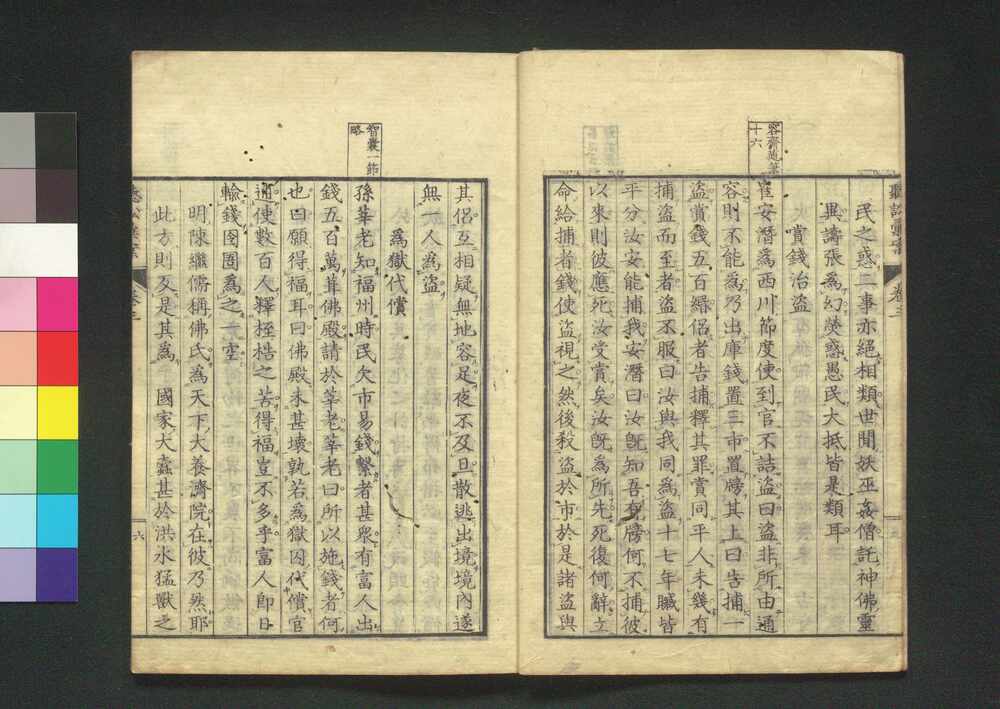 民之惑二事亦絕相類世間妖巫姦僧託神佛靈
異譸張為幻熒惑愚民大抵皆是類耳
賞錢治盜
容齋隨筆
十六
崔安潛為西川節度使到官不詰盜曰盜非所由通
容則不能為乃出庫錢置三市置牓其上曰告捕一
盜賞錢五百緡侶者告捕釋其罪賞同平人未幾有
捕盜而至者盜不服曰汝與我同為盜十七年贓皆
平分汝安能捕我安潛曰汝旣知吾有牓何不捕彼
以來則彼應死汝受賞矣汝旣為所先死復何辭立
命給捕者錢使盜視之然後殺盜於市於是諸盜與
其侶互相疑無地容足夜不及旦散逃出境境內遂
無一人為盜
為獄代償
智囊一節
略
孫莘老知福州時民欠市易錢繫者甚衆有富人出
錢五百萬葺佛殿請於莘老莘老曰所以施錢者何
也曰願得福耳曰佛殿未甚壞孰若為獄囚代償官
逋使數百人釋桎梏之苦得福豈不多乎富人即日
輸錢囹圄為之一空
明陳繼儒稱佛氏為天下大養濟院在彼乃然耶
此方則反是其為 國家大蠹甚於洪水猛獸之
六